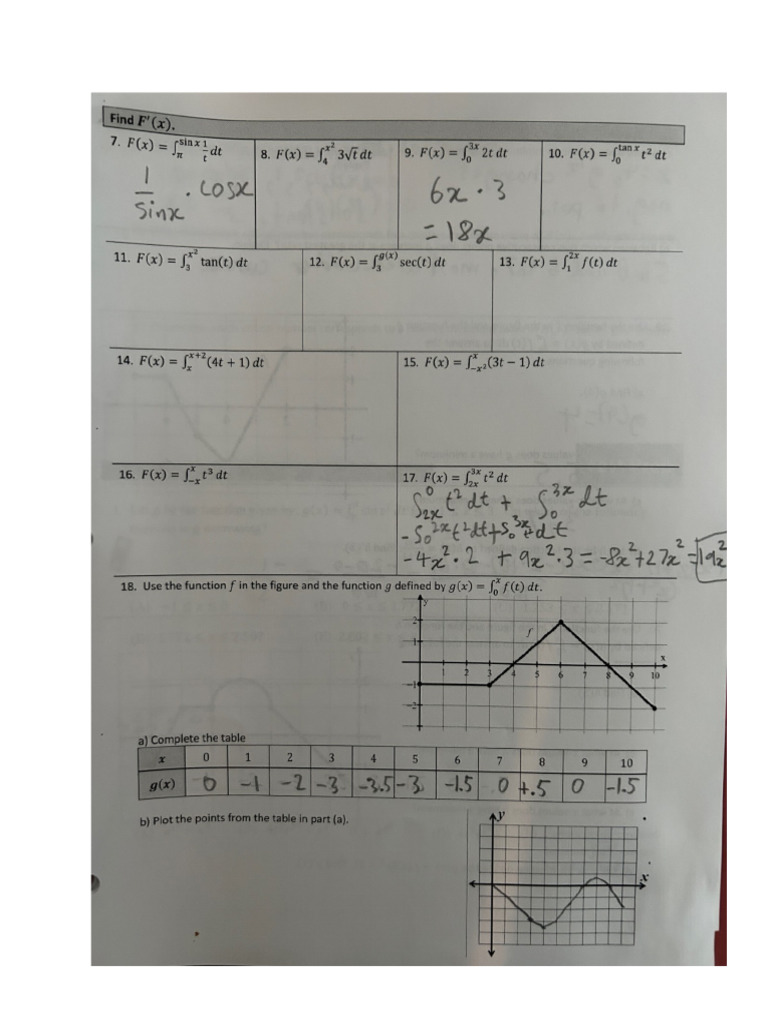 Find F′(x).
7. F(x) = ∫_π^{sin x} 1/t dt
1/sinx · cosx
8. F(x) = ∫_4^{x²} 3√t dt
9. F(x) = ∫_0^{3x} 2t dt
6x · 3
= 18x
10. F(x) = ∫_0^{tan x} t² dt
11. F(x) = ∫_3^{x²} tan(t) dt
12. F(x) = ∫_3^{g(x)} sec(t) dt
13. F(x) = ∫_1^{2x} f(t) dt
14. F(x) = ∫_x^{x+2} (4t + 1) dt
15. F(x) = ∫_{−x²}^x (3t − 1) dt
16. F(x) = ∫_{−x}^x t³ dt
17. F(x) = ∫_{2x}^{3x} t² dt
∫_{2x}^0 t² dt + ∫_0^{3x} dt
-∫_0^{2x} t² dt + ∫_0^{3x} dt
-4x² · 2 + 9x² · 3 = -8x² + 27x² = 19x²
18. Use the function f in the figure and the function g defined by g(x) = ∫_0^x f(t) dt.
y
2
1
−1
−2
f
x
1 2 3 4 5 6 7 8 9 10
a) Complete the table
x 0 1 2 3 4 5 6 7 8 9 10
g(x) 0 -1 -2 -3 -3.5 -3 -1.5 0 +.5 0 -1.5
b) Plot the points from the table in part (a).
y
x